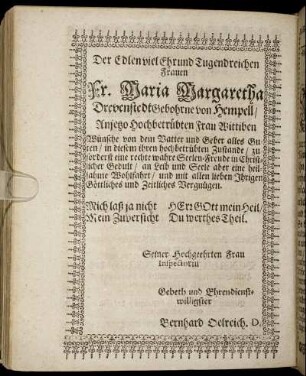 Der Edlen viel Ehr und Tugendreichen
Frauen
Fr. Maria Margaretha
Drevenstedt Gebohrne von Hempell /
Anjetzo Hochbetrübten Frau Wittiben
Wünsche von dem Vatter und Geber alles Gu
ten / in diesem ihren hochbetrübten Zustande / zu
förderst eine rechte wahre Seelen-Freude in Christ
licher Gedult / an Leib und Seele aber eine heil
sahme Wohlfahrt / und mit allen lieben Ihrigen
Göttliches und Zeitliches Vergnügen.
Mich laß ja nicht HErr GOtt mein Heil /
Mein Zuversicht Du werthes Theil.
Seiner Hochgeehrten Frau
Inspectorin
Gebeth und Ehrendienst-
willigster
Bernhard Oelreich. D.